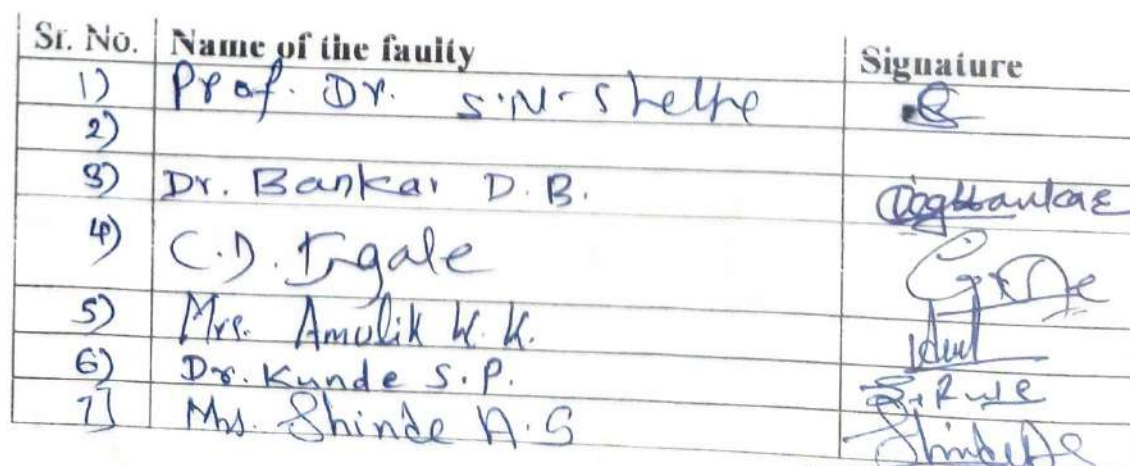 Sr. No. Name of the faulty Signature
1) Prof. Dr. S.N. Shelke
2)
3) Dr. Bankar D.B. Dagbankar
4) C.D. Ingale
5) Mrs. Amulik K.K.
6) Dr. Kunde S.P.
7] Mrs. Shinde A.S Shinde AS